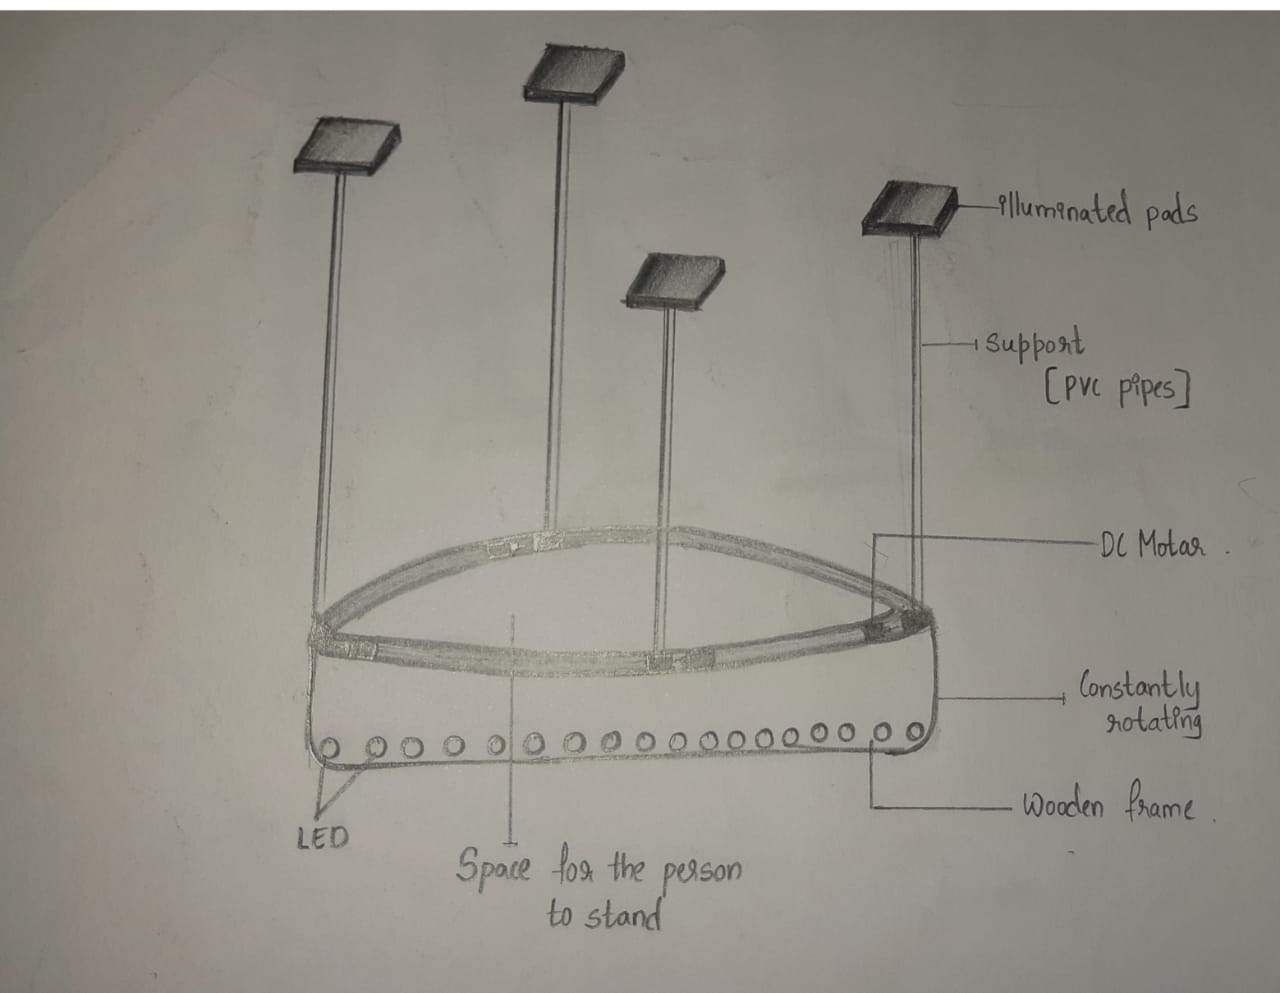 illuminated pads
support
[PVC pipes]
DC Motar.
Constantly
rotating
Wooden frame.
LED
Space for the person
to stand